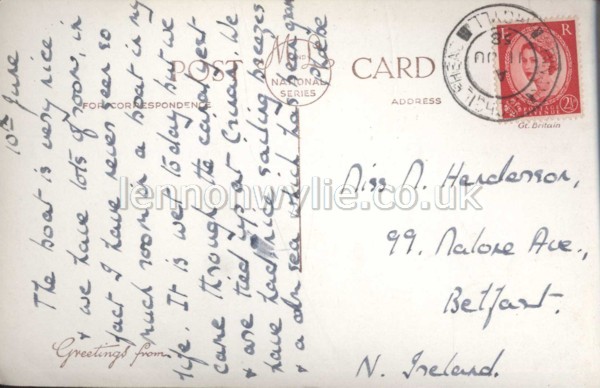 POST CARD
M and L
NATIONAL
SERIES
FOR CORRESPONDENCE
ADDRESS
Gt. Britain
10th June
The boat is very nice
& we have lots of room, in
fact I have never seen so
much room in a boat in my
life. It is wet today but we
came through the canal yest
& are tied up at Crinan. We
have had nice sailing breezes
& a calm sea which has been
please
Greetings from
Miss M. Henderson,
99. Malone Ave.,
Belfast.
N. Ireland.
lennonwylie.co.uk